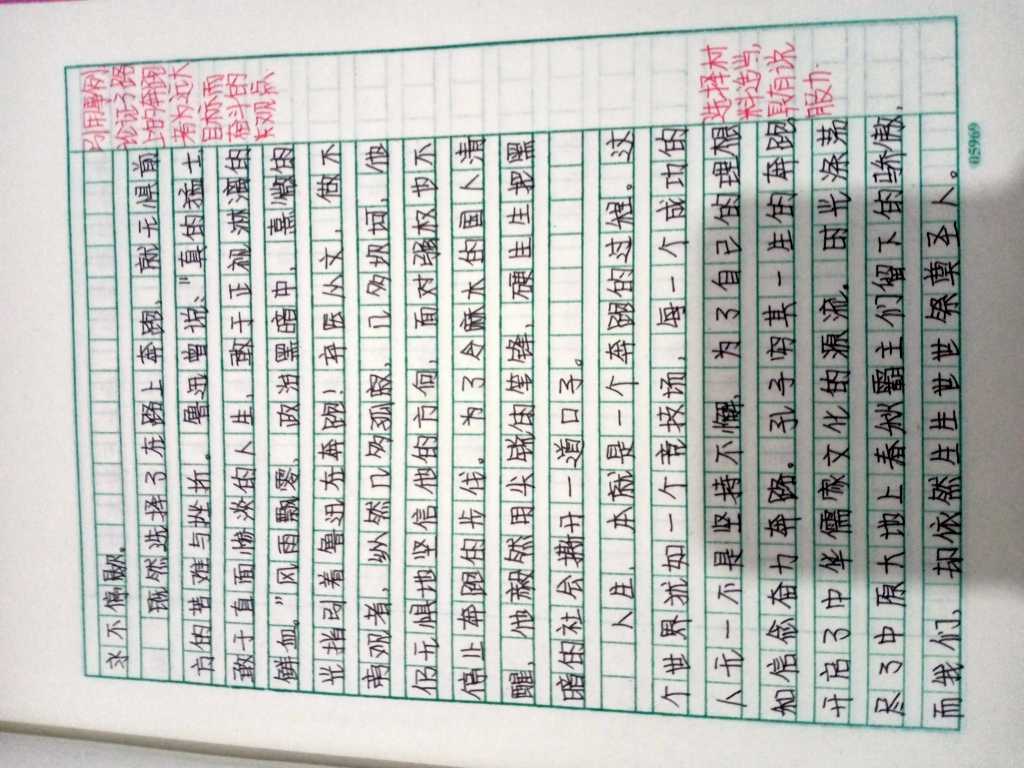 求不停歇。
既然选择了在路上奔跑，就无惧前
方的苦难与挫折。鲁迅曾说：“真的猛士
敢于直面惨淡的人生，敢于正视淋漓的
鲜血。”风雨飘零、政治黑暗中，熹微的
光指引着鲁迅在奔跑！弃医从文，做不
旁观者，纵然几多孤寂，几多坎坷，他
仍无惧地坚信他的方向，面对强权也不
停止奔跑的步伐。为了令麻木的国人清
醒，他赫然用尖锐的笔锋，硬生生把黑
暗的社会撕开一道口子。
人生，本就是一个奔跑的过程。这
个世界就如一个竞技场，每一个成功的
人无一不是坚持不懈，为了自己的理想
和信念奋力奔跑。孔子穷其一生的奔跑
开启了中华儒家文化的源流。时光涤荡
尽了中原大地上春秋霸主们留下的骄傲，
而我们，却依然生生世世祭奠圣人。
引用事例，
论证了路
上的奔跑
者为远大
目标而
奋斗的
观点
选择材
料适当，
具有说
服力.
05969